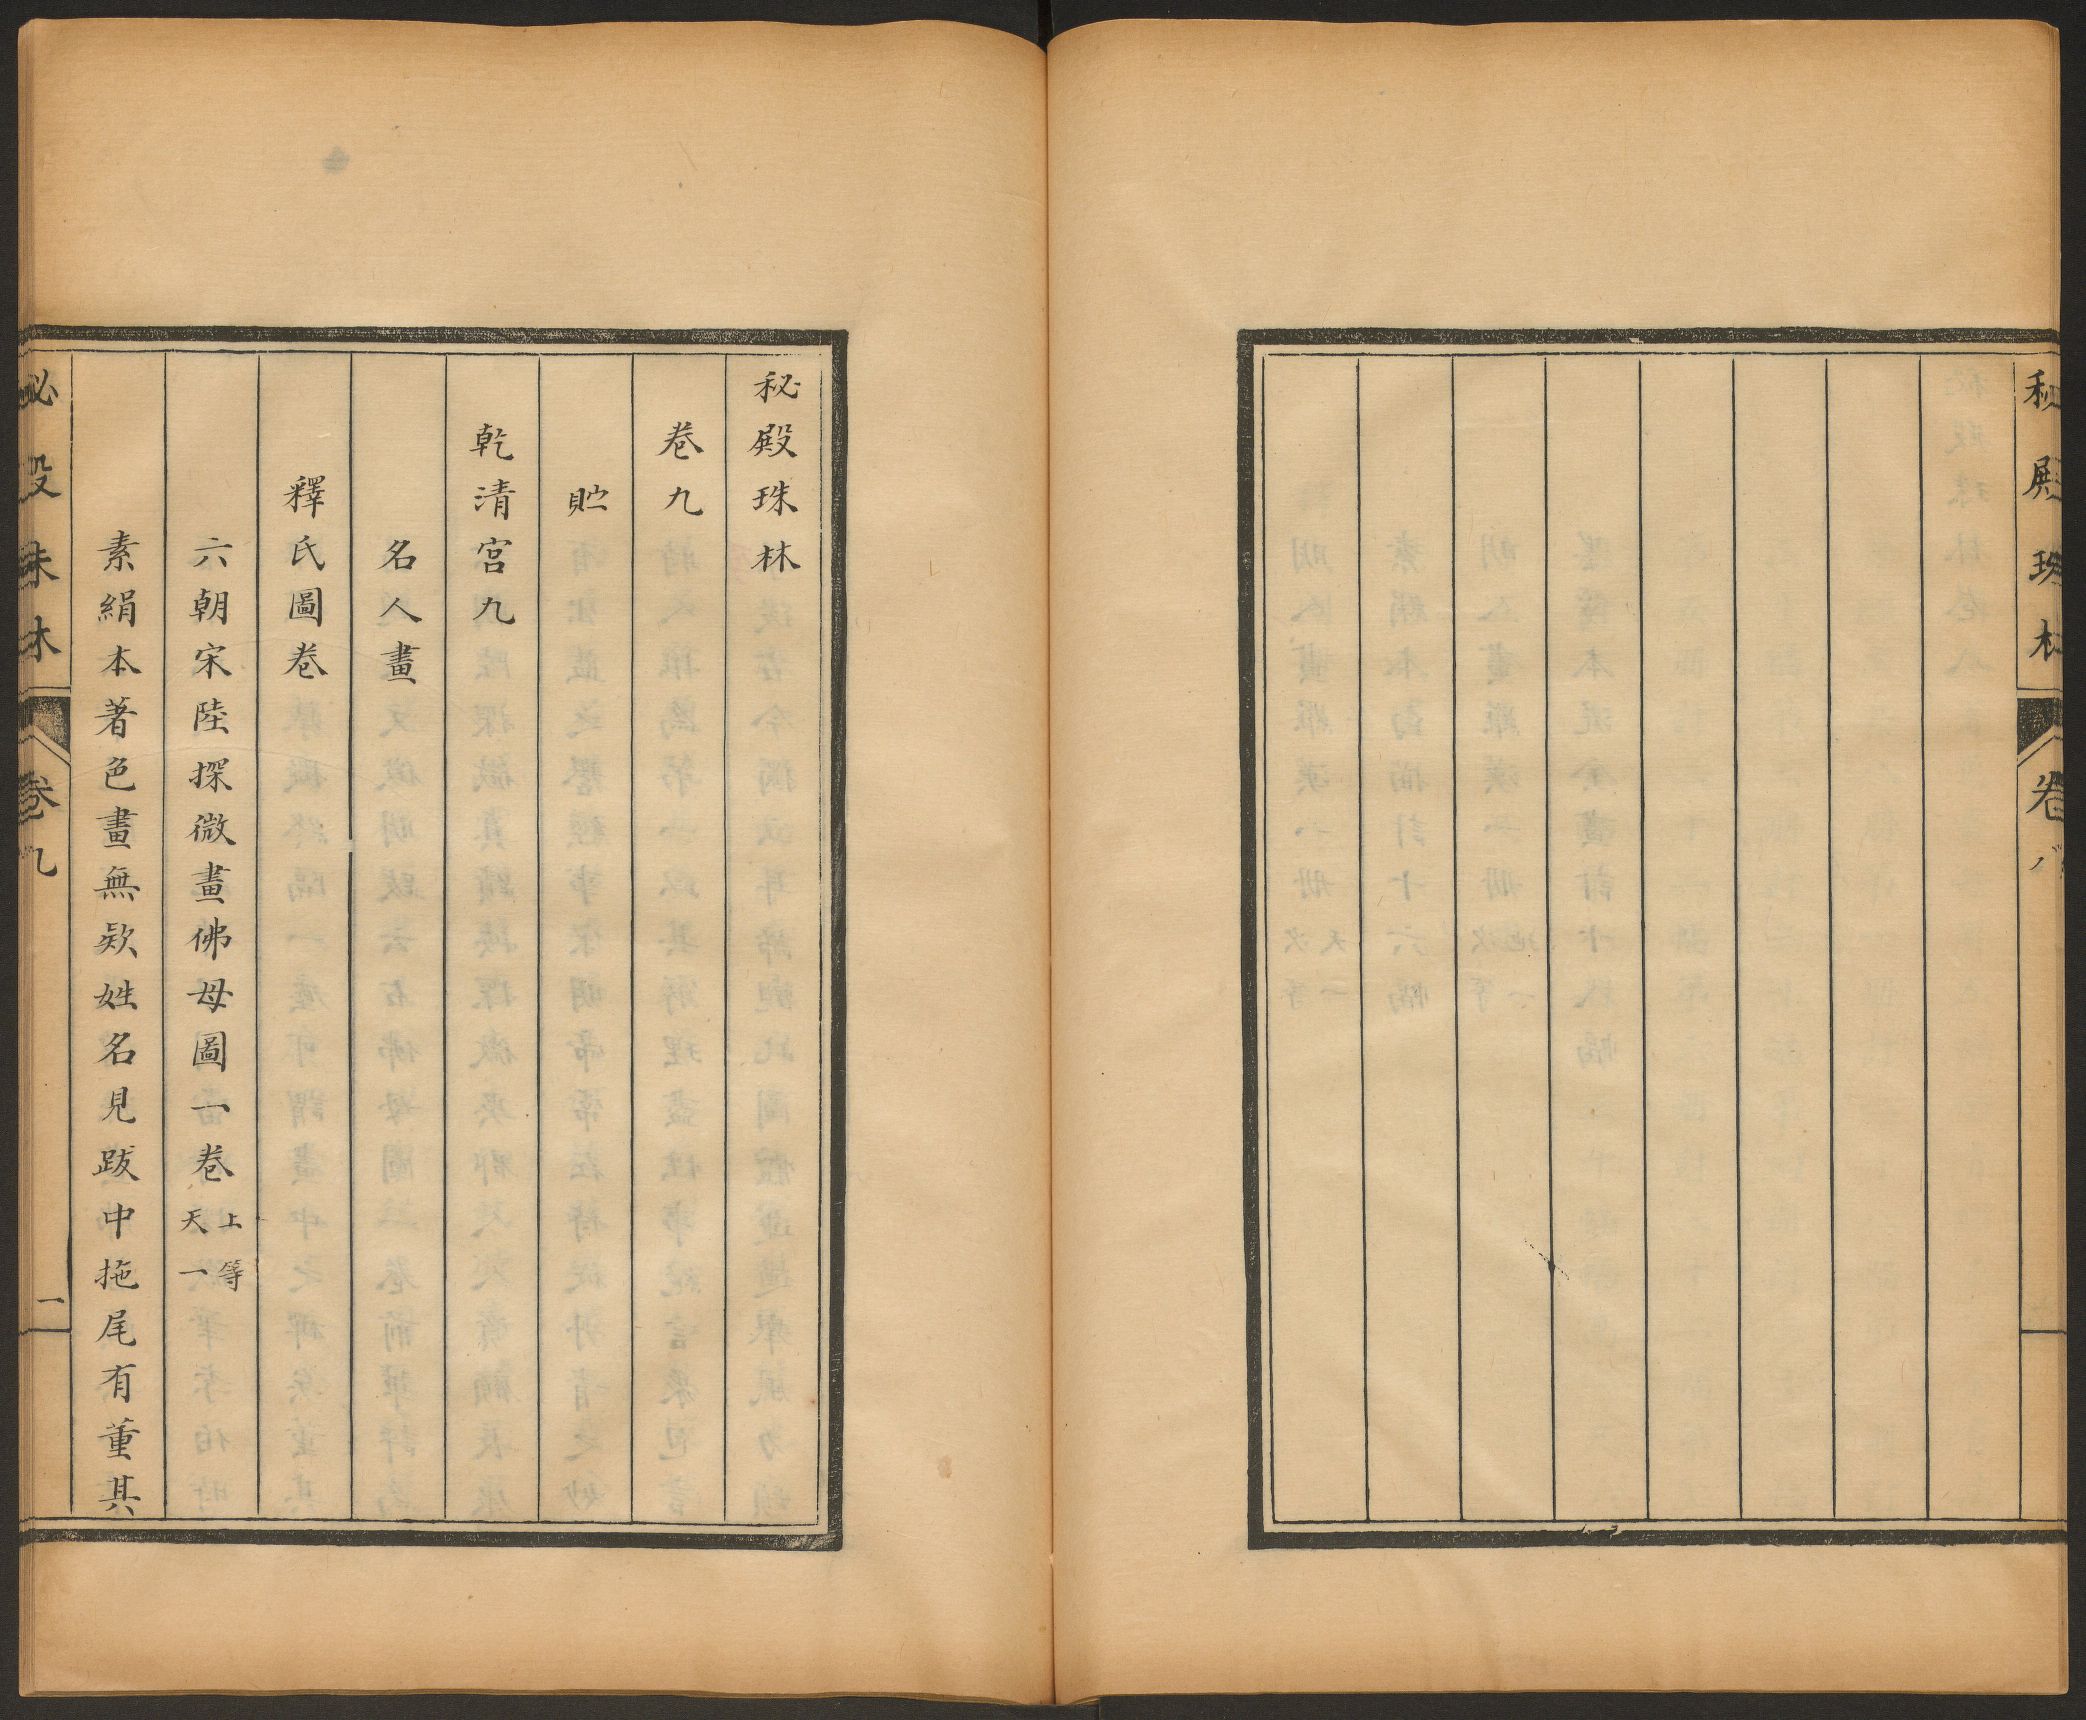 秘殿珠林
卷八
秘殿珠林
卷九
貯
乾清宮九
名人畫
釋氏圖卷
六朝宋陸探微畫佛母圖一卷 上等 天一
素絹本著色畫無欵姓名見跋中拖尾有董其
秘殿珠林
卷九
一